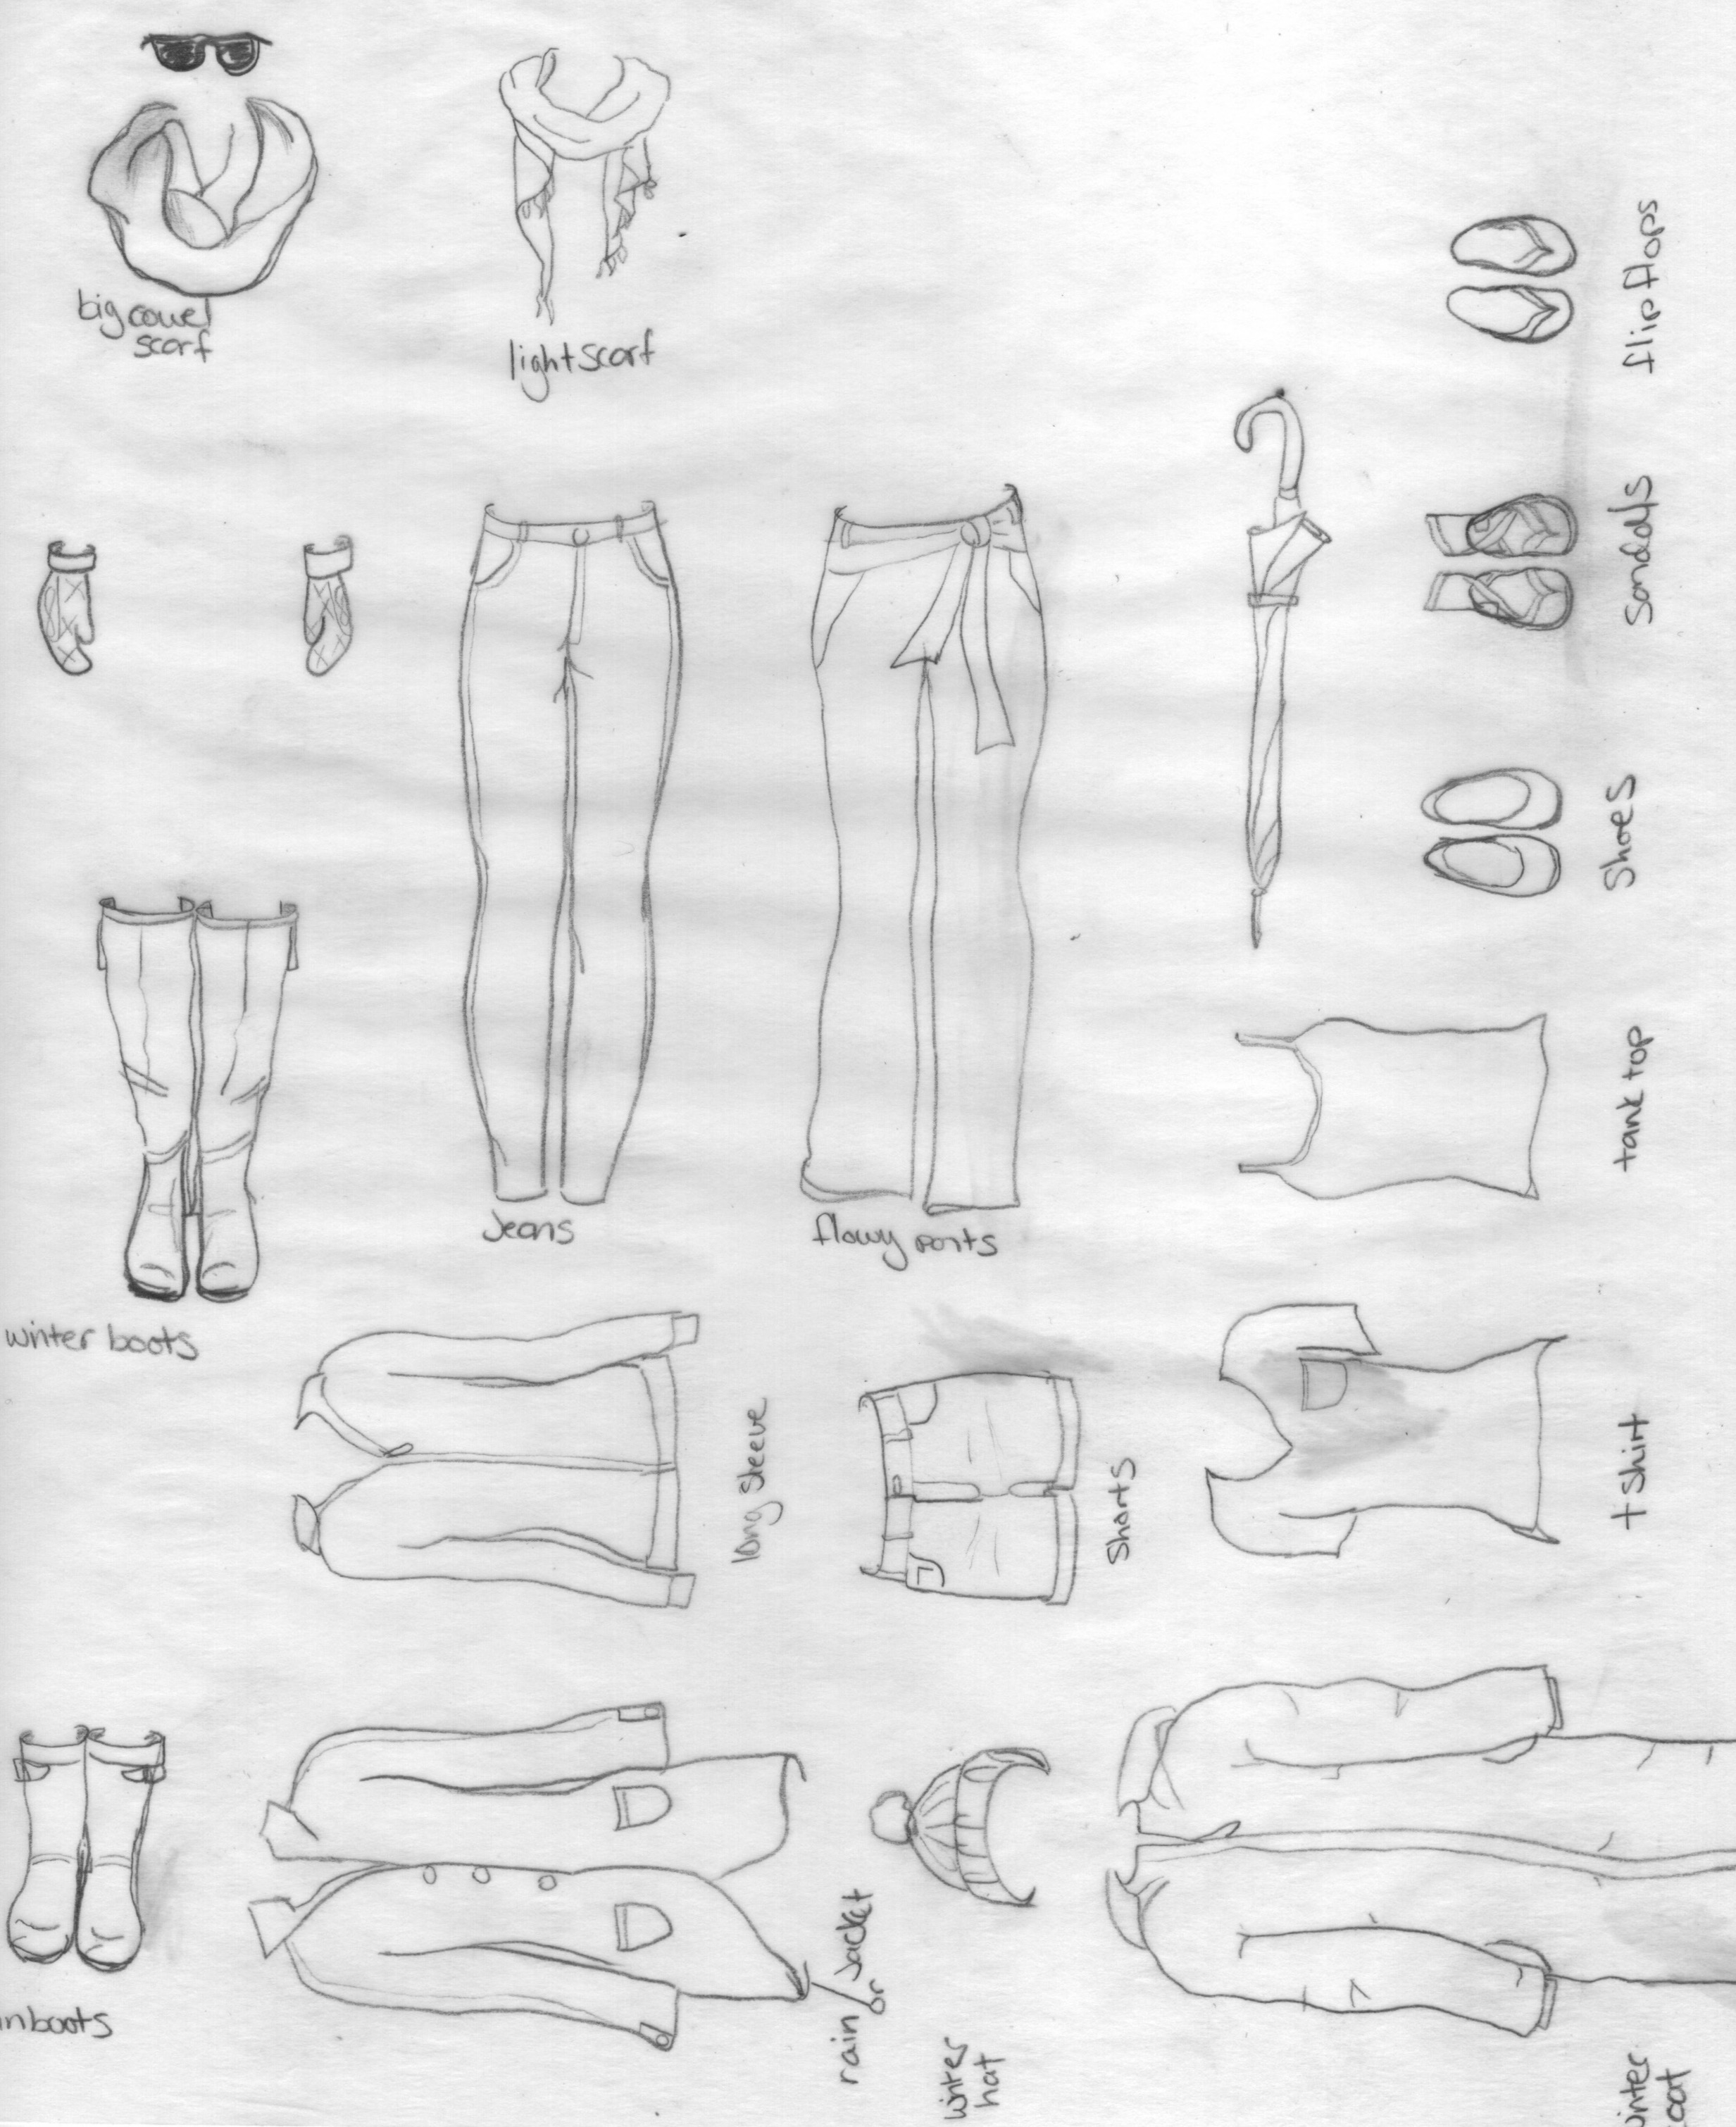 big cowel
scarf
light scarf
flip flops
sandals
shoes
tank top
Jeans
flowy pants
winter boots
long sleeve
shorts
t shirt
inboots
rain / Jacket
or
winter
hat
winter
coat